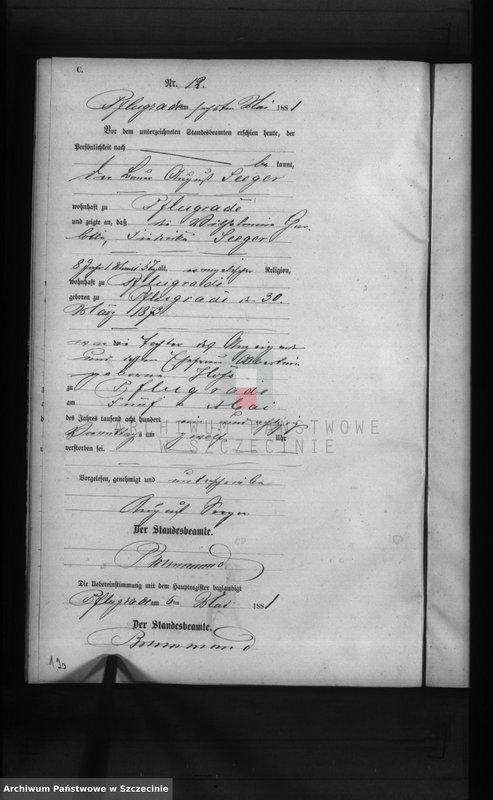 C.
Nr. 12.
Pflugrade am sechsten Mai 1881
Vor dem unterzeichneten Standesbeamten erschien heute, der
Persönlichkeit nach
be kannt,
der Bauer August Seeger
wohnhaft zu Pflugrade
und zeigte an, daß die Wilhelmine
Friedrike Seeger
8 Jahr 1 Monat alt, evangelischer Religion,
wohnhaft zu Pflugrade
geboren zu Pflugrade den 30.
März 1873
war die Tochter des Anzeigenden
und seiner Ehefrau Albertine
geborene
zu Pflugrade
am Fünf Mai
des Jahres tausend acht hundert achtzig und
Vormittags um zwölf Uhr
verstorben sei.
Vorgelesen, genehmigt und unterschrieben
August Seeger
Der Standesbeamte.
Die Uebereinstimmung mit dem Hauptregister beglaubigt
Pflugrade am 6ten Mai 1881
Der Standesbeamte.
ARCHIWUM PAŃSTWOWE
W SZCZECINIE
Archiwum Państwowe w Szczecinie